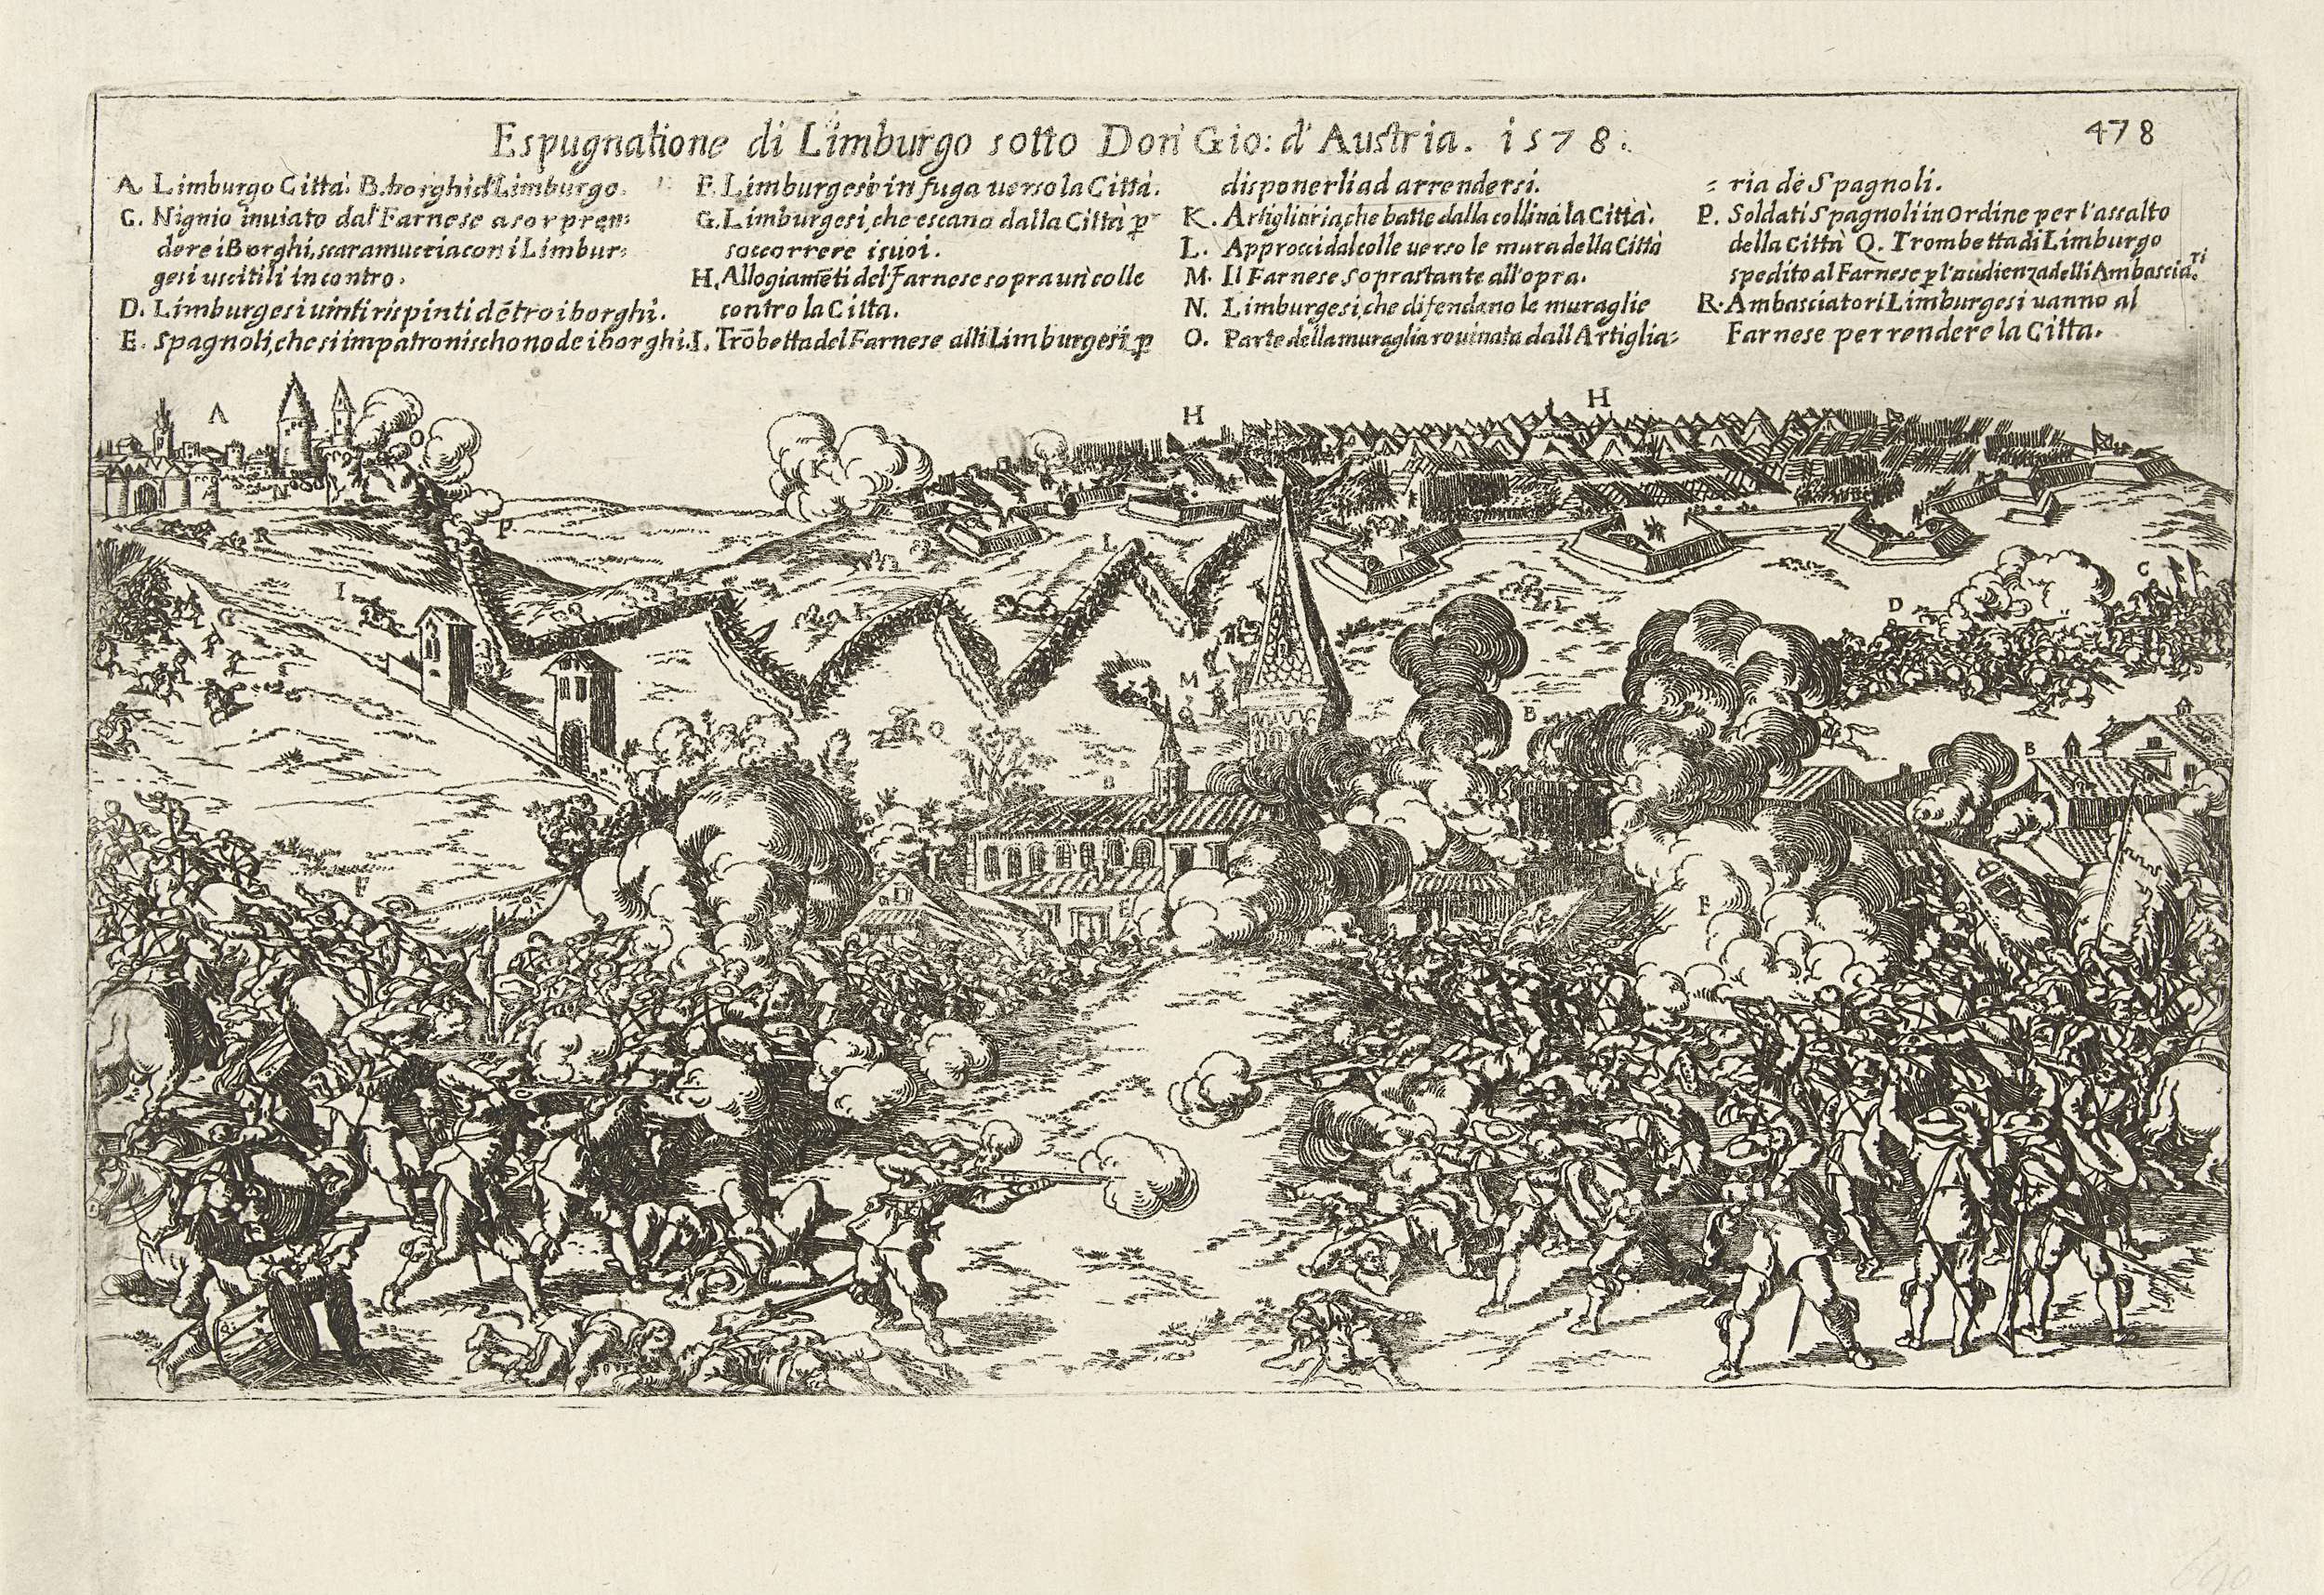 Espugnatione di Limburgo sotto Don Gio: d'Austria. 1578.
478
A. Limburgo Città. B. borghi d'Limburgo.
C. Nignio inuiato dal Farnese a sorpren=
dere i Borghi, scaramuccia con i Limbur=
gesi uscitili incontro.
D. Limburgesi uinti rispinti dētro i borghi.
E. Spagnoli, che si impatronischono de i borghi.
F. Limburgesi in fuga uerso la Città.
G. Limburgesi, che escano dalla Città p
soccorrere i suoi.
H. Allogiamēti del Farnese sopra un colle
contro la Citta.
I. Trōbetta del Farnese alli Limburgesi p
disponerli ad arrendersi.
K. Artigliaria, che batte dalla collina la Città.
L. Approcci dal colle uerso le mura della Città
M. Il Farnese soprastante all'opra.
N. Limburgesi, che difendano le muraglie
O. Parte della muraglia rouinata dall Artiglia=
=ria de Spagnoli.
P. Soldati Spagnoli in ordine per l'assalto
della Città Q. Trombetta di Limburgo
spedito al Farnese p l'audienza delli Ambasciat.ri
R. Ambasciatori Limburgesi uanno al
Farnese per rendere la Citta.
A
H
H
O
K
N
P
R
L
C
I
D
G
L
M
B
Q
B
F
E